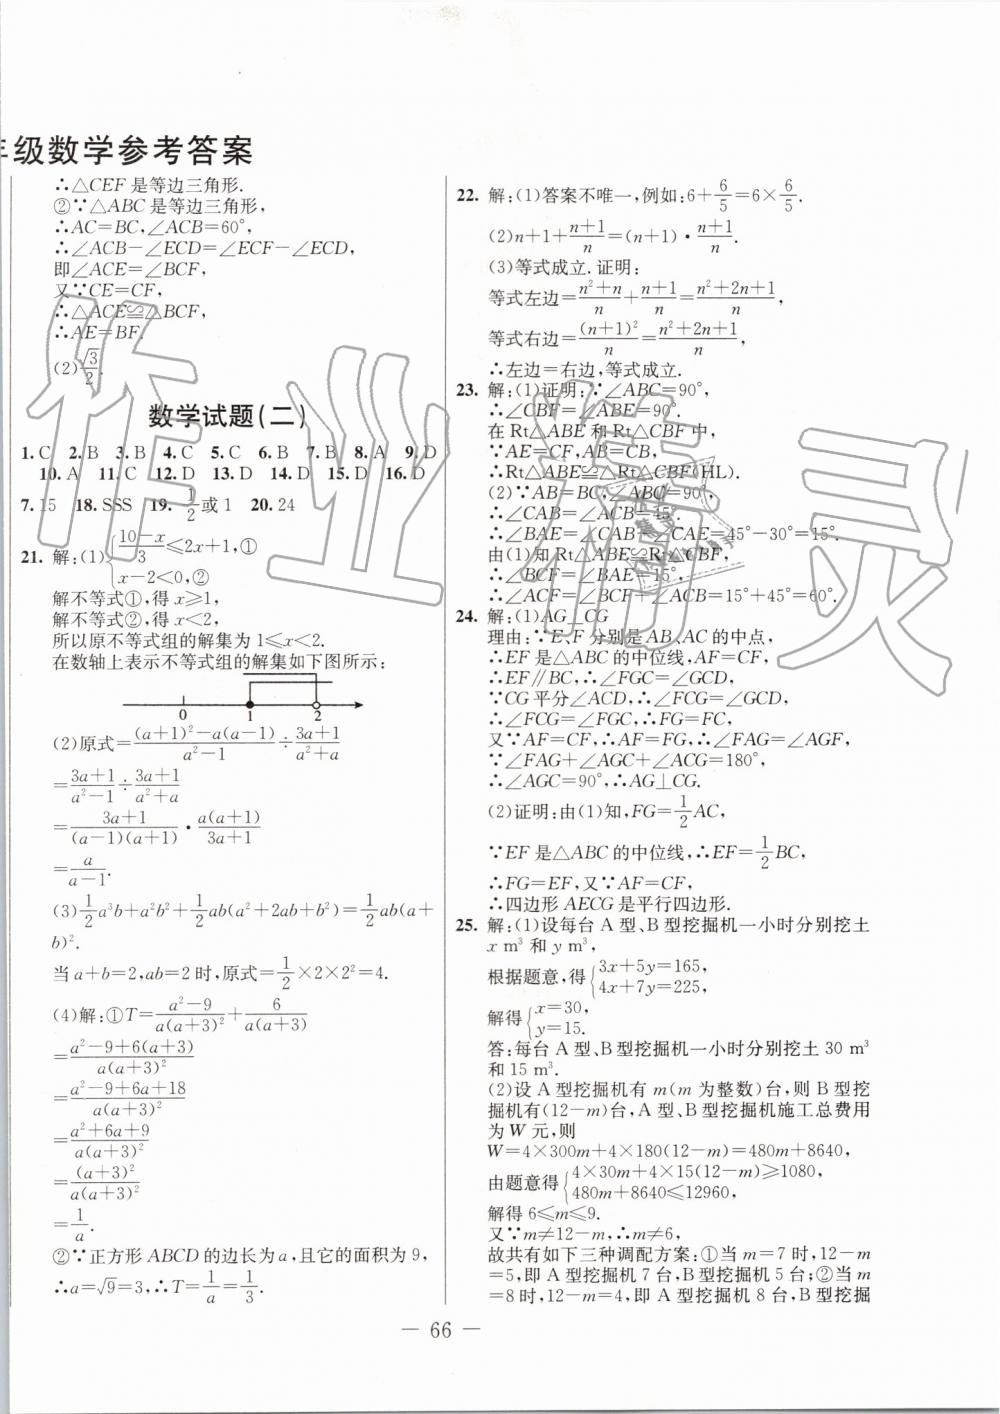 年级数学参考答案
∴△CEF 是等边三角形.
②∵△ABC 是等边三角形,
∴AC=BC,∠ACB=60°,
∴∠ACB-∠ECD=∠ECF-∠ECD,
即∠ACE=∠BCF,
又∵CE=CF,
∴△ACE≌△BCF,
∴AE=BF.
(2)√3/2.
数学试题(二)
1.C 2.B 3.B 4.C 5.C 6.B 7.B 8.A 9.D
10.A 11.C 12.D 13.D 14.D 15.D 16.D
7.15 18.SSS 19.1/2或1 20.24
21. 解:(1){(10-x)/3≤2x+1,①
x-2<0,②
解不等式①,得 x≥1,
解不等式②,得 x<2,
所以原不等式组的解集为 1≤x<2.
在数轴上表示不等式组的解集如下图所示:
0 1 2
(2)原式=((a+1)²-a(a-1))/(a²-1)÷(3a+1)/(a²+a)
=(3a+1)/(a²-1)÷(3a+1)/(a²+a)
=(3a+1)/((a-1)(a+1))·(a(a+1))/(3a+1)
=a/(a-1).
(3)1/2a³b+a²b²+1/2ab(a²+2ab+b²)=1/2ab(a+
b)².
当 a+b=2,ab=2 时,原式=1/2×2×2²=4.
(4)解:①T=(a²-9)/(a(a+3)²)+6/(a(a+3))
=(a²-9+6(a+3))/(a(a+3)²)
=(a²-9+6a+18)/(a(a+3)²)
=(a²+6a+9)/(a(a+3)²)
=(a+3)²/(a(a+3)²)
=1/a.
②∵正方形 ABCD 的边长为 a,且它的面积为 9,
∴a=√9=3,∴T=1/a=1/3.
22. 解:(1)答案不唯一,例如:6+6/5=6×6/5.
(2)n+1+(n+1)/n=(n+1)·(n+1)/n.
(3)等式成立.证明:
等式左边=(n²+n)/n+(n+1)/n=(n²+2n+1)/n,
等式右边=(n+1)²/n=(n²+2n+1)/n,
∴左边=右边,等式成立.
23. 解:(1)证明:∵∠ABC=90°,
∴∠CBF=∠ABE=90°.
在 Rt△ABE 和 Rt△CBF 中,
∵AE=CF,AB=CB,
∴Rt△ABE≌Rt△CBF(HL).
(2)∵AB=BC,∠ABC=90°,
∴∠CAB=∠ACB=45°.
∴∠BAE=∠CAB-∠CAE=45°-30°=15°.
由(1)知 Rt△ABE≌Rt△CBF,
∴∠BCF=∠BAE=15°,
∴∠ACF=∠BCF+∠ACB=15°+45°=60°.
24. 解:(1)AG⊥CG
理由:∵E、F 分别是 AB、AC 的中点,
∴EF 是△ABC 的中位线,AF=CF,
∴EF∥BC,∴∠FGC=∠GCD,
∵CG 平分∠ACD,∴∠FCG=∠GCD,
∴∠FCG=∠FGC,∴FG=FC,
又∵AF=CF,∴AF=FG,∴∠FAG=∠AGF,
∵∠FAG+∠AGC+∠ACG=180°,
∴∠AGC=90°,∴AG⊥CG.
(2)证明:由(1)知,FG=1/2AC,
∵EF 是△ABC 的中位线,∴EF=1/2BC,
∴FG=EF,又∵AF=CF,
∴四边形 AECG 是平行四边形.
25. 解:(1)设每台 A 型、B 型挖掘机一小时分别挖土
x m³ 和 y m³,
根据题意,得{3x+5y=165,
4x+7y=225,
解得{x=30,
y=15.
答:每台 A 型、B 型挖掘机一小时分别挖土 30 m³
和 15 m³.
(2)设 A 型挖掘机有 m(m 为整数)台,则 B 型挖
掘机有(12-m)台,A 型、B 型挖掘机施工总费用
为 W 元,则
W=4×300m+4×180(12-m)=480m+8640,
由题意得{4×30m+4×15(12-m)≥1080,
480m+8640≤12960,
解得 6≤m≤9.
又∵m≠12-m,∴m≠6,
故共有如下三种调配方案:①当 m=7 时,12-m
=5,即 A 型挖掘机 7 台,B 型挖掘机 5 台;②当 m
=8 时,12-m=4,即 A 型挖掘机 8 台,B 型挖掘
— 66 —
作业精灵